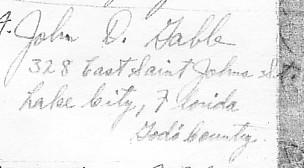 John D. Gable
328 East Saint Johns St.
Lake City, Florida
County